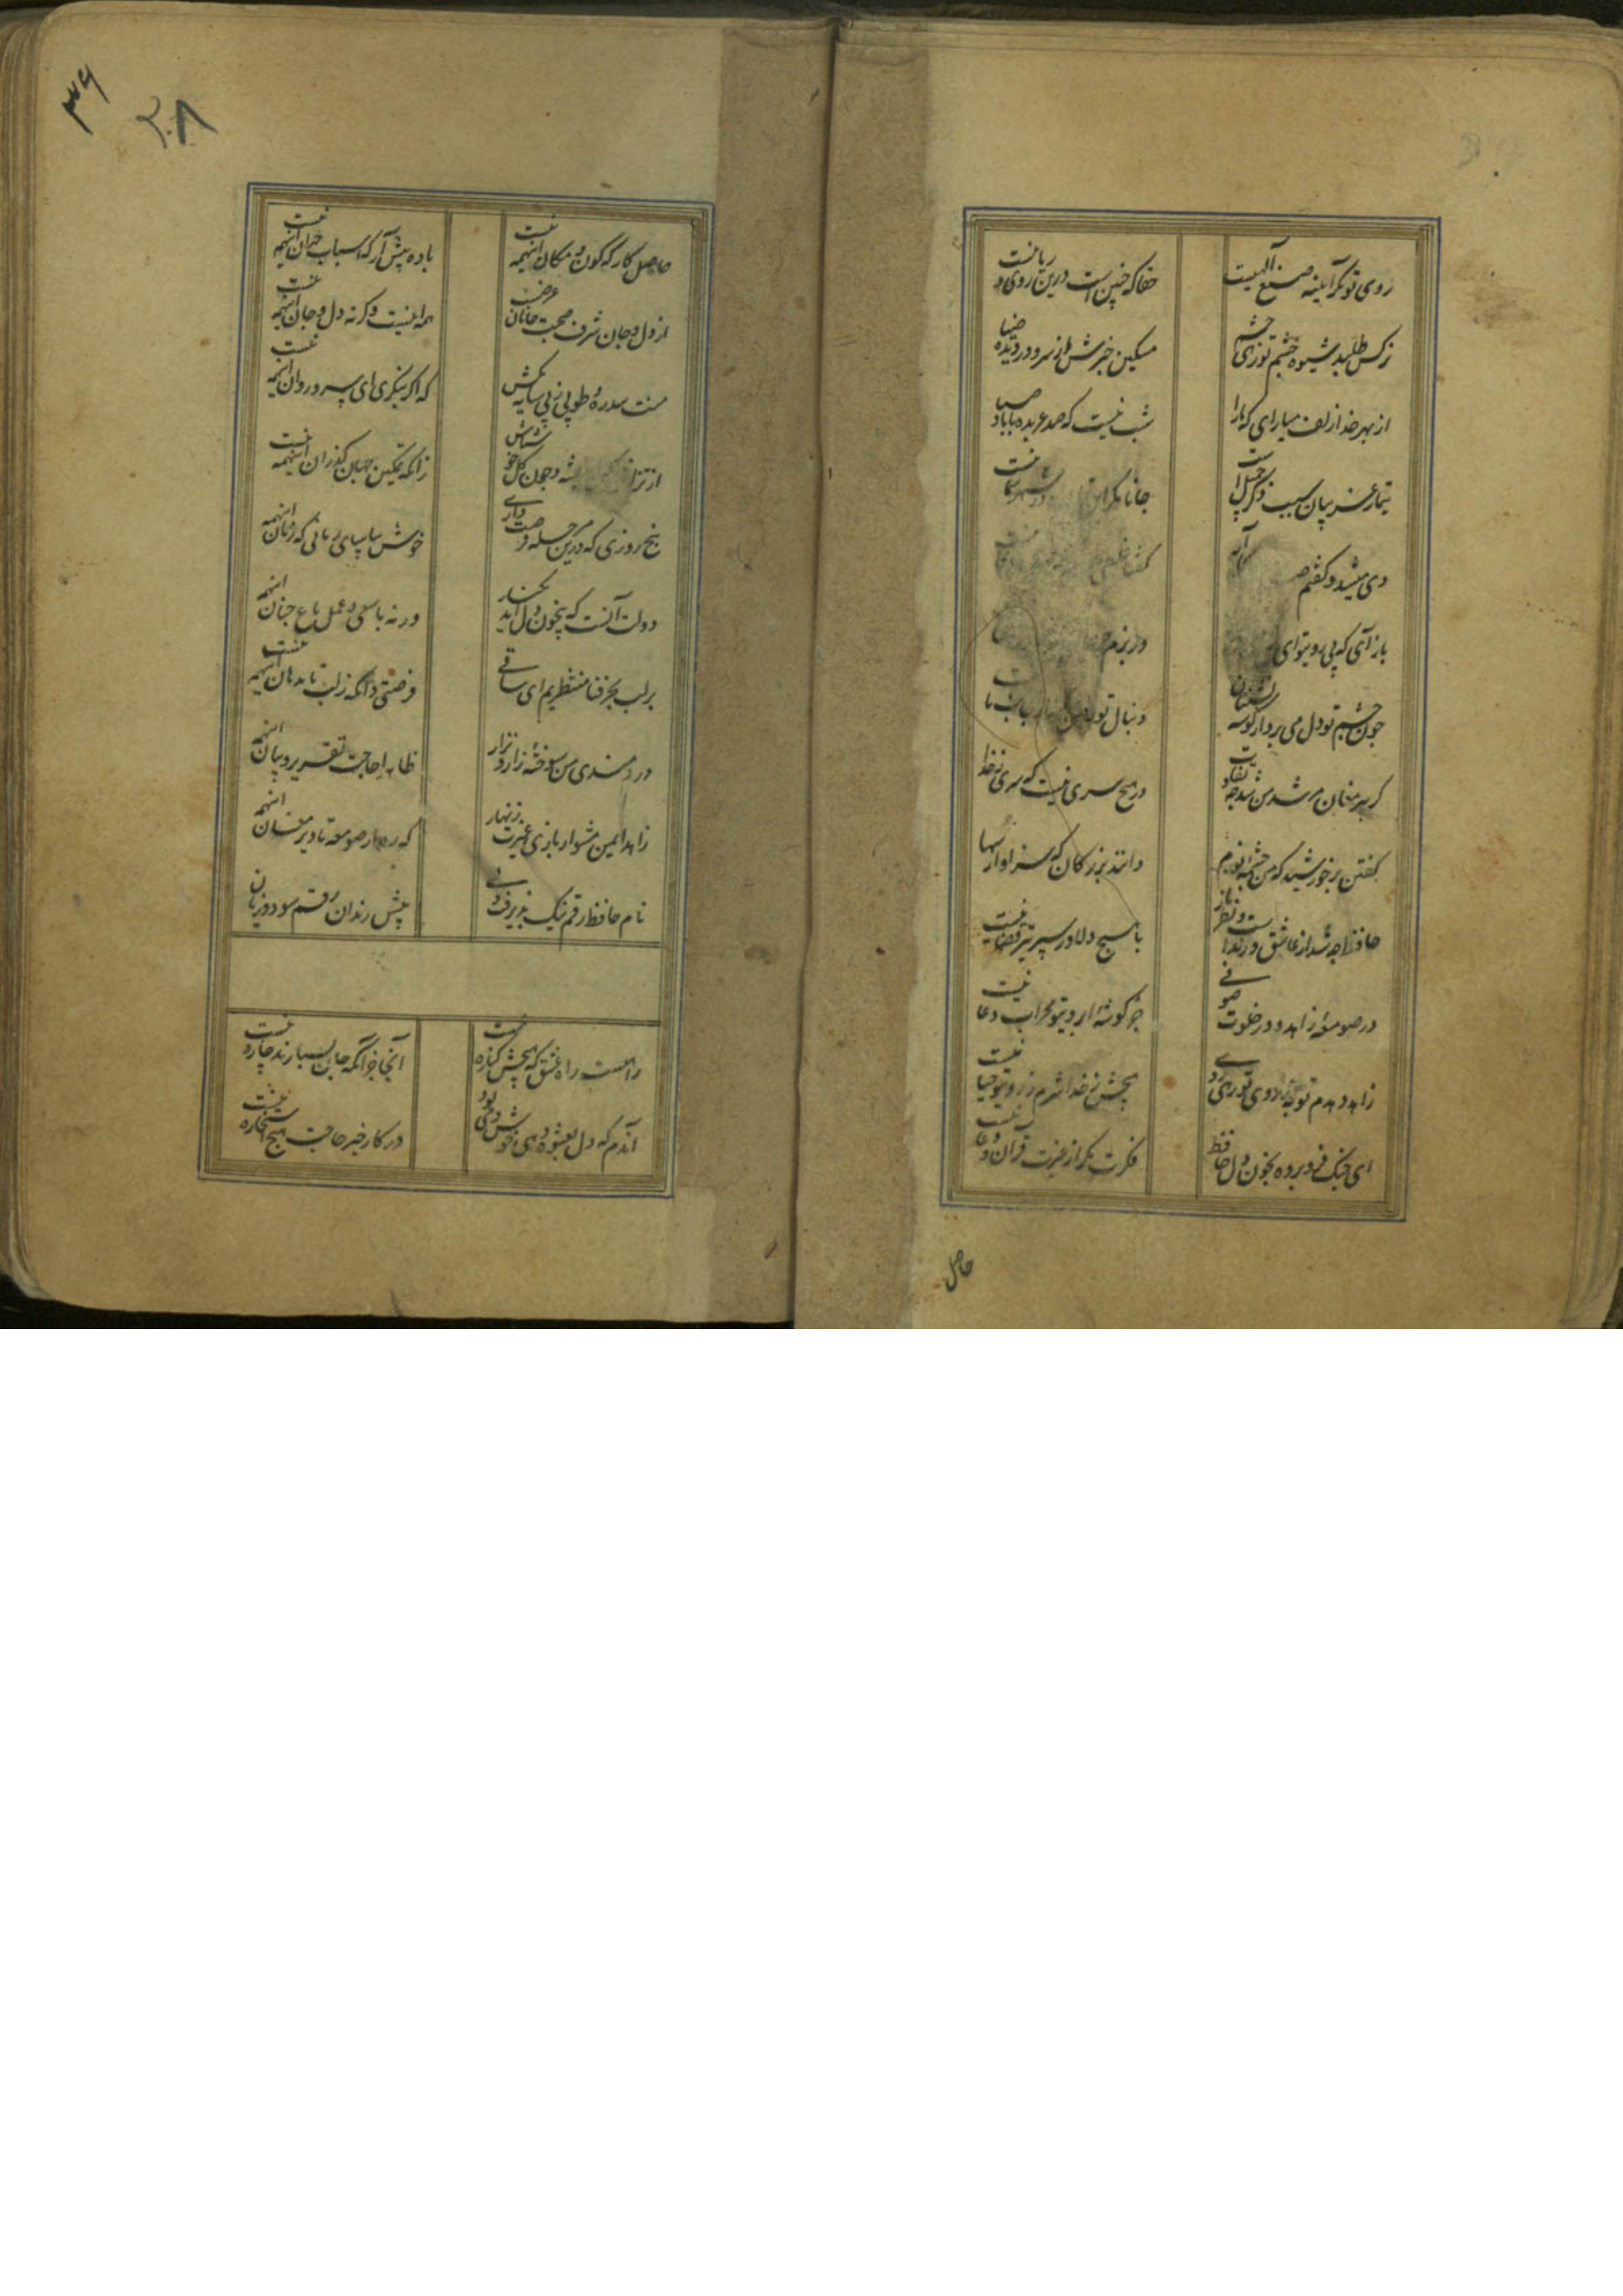 روی تو مگر آینه صنع الهیست
حقا که چنین است درین روی و ریا نیست
نرکس طلبد شیوه چشم تو زهی چشم
مسکین خبرش از سر و در دیده ضیا نیست
از بهر خدا زلف میارای که ما را
شب نیست که صد عربده با باد صبا نیست
تیمار غریبان سبب ذکر جمیل است
جانا مکر این در شهر شما نیست
دی میشد و کفتم
باز آی که بی روی تو ای
در بزم
چون چشم تو دل می برد از کوشه نشینان
دنبال تو
کر پیر مغان مرشد من شد چه تفاوت
در هیچ سری نیست که سری ز خدا
کفتن بر خورشید که من چشمه نورم
دانند بزرکان که سزاوار سها
عاشق
با هیچ دلاور سپر تیر قضا نیست
در صومعه زاهد و در خلوت صوفی
جز کوشه ابروی تو محراب دعا نیست
زاهد
هیچش ز خدا شرم ز روی تو حیا نیست
ای چنک فرو برده بخون دل حافظ
فکرت مکر از غیرت قرآن و خدا نیست
حاصل
۳۶
۳۸
حاصل کارکه کون و مکان اینهمه نیست
باده پیش آر که اسباب جهان اینهمه نیست
از دل و جان شرف صحبت جانان غرضست
همه اینست وکرنه دل و جان اینهمه نیست
منت سدره و طوبی ز پی سایه مکش
که اکر بنکری ای سرو روان اینهمه نیست
از
زانکه تمکین جهان کذران اینهمه نیست
پنج روزی که درین مرحله فرصت داری
خوش بیاسای زمانی که زمان اینهمه
دولت آنست که بیخون دل آید بکنار
ورنه با سعی و عمل باغ جنان اینهمه
بر لب بحر فنا منتظریم ای ساقی
فرصتی دان که ز لب تا بدهان اینهمه نیست
دردمندی من سوخته زار و نزار
ظاهرا حاجت تقریر و بیان اینهمه
زاهد ایمن مشو از بازی غیرت زنهار
که ره از صومعه تا دیر مغان اینهمه
نام حافظ رقم نیک پذیرفت ولی
پیش رندان رقم سود و زیان
راهیست راه عشق که هیچش کناره نیست
آنجا جز آنکه جان بسپارند چاره نیست
آندم که دل بعشق دهی خوش دمی بود
در کار خیر حاجت هیچ استخاره نیست